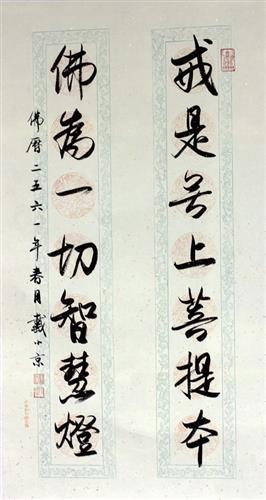 戒是无上菩提本
佛为一切智慧灯
佛曆二五六一年春月戴小京